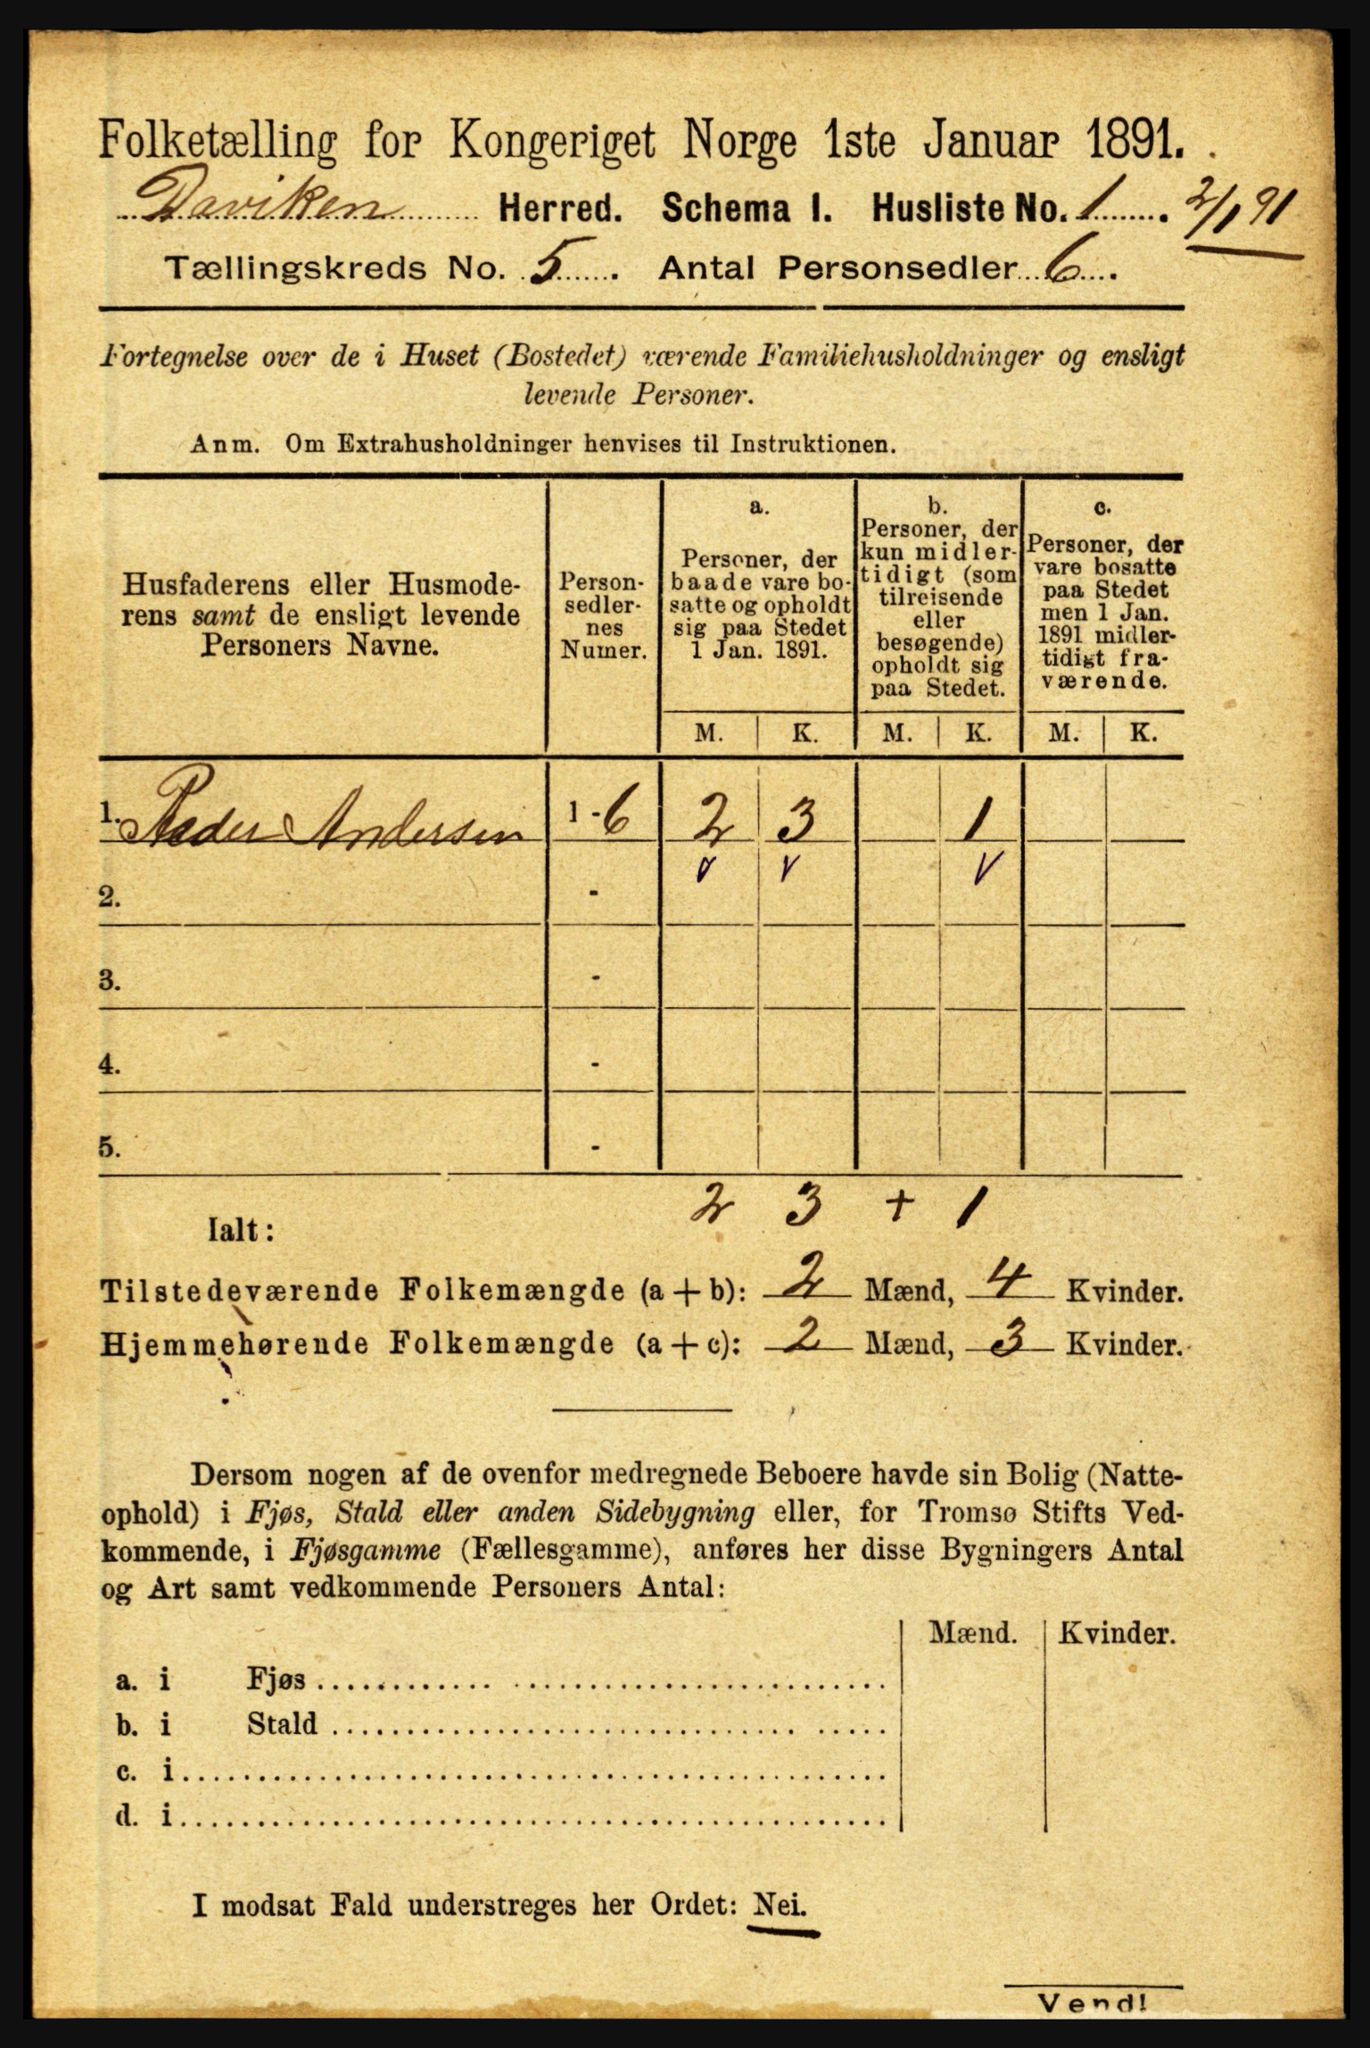 Folketælling for Kongeriget Norge 1ste Januar 1891.
Daviken Herred. Schema I. Husliste No. 1. 2/1 91
Tællingskreds No. 5. Antal Personsedler 6.
Fortegnelse over de i Huset (Bostedet) værende Familiehusholdninger og ensligt
levende Personer.
Anm. Om Extrahusholdninger henvises til Instruktionen.
Husfaderens eller Husmode-
rens samt de ensligt levende
Personers Navne.
Person-
sedler-
nes
Numer.
a.
Personer, der
baade vare bo-
satte og opholdt
sig paa Stedet
1 Jan. 1891.
b.
Personer, der
kun midler-
tidigt (som
tilreisende
eller
besøgende)
opholdt sig
paa Stedet.
c.
Personer, der
vare bosatte
paa Stedet
men 1 Jan.
1891 midler-
tidigt fra-
værende.
M. K. M. K. M. K.
1. Peder Andersen 1 - 6 2 3 1
v v v
2. -
3. -
4. -
5. -
2 3 + 1
Ialt:
Tilstedeværende Folkemængde (a + b): 2 Mænd, 4 Kvinder.
Hjemmehørende Folkemængde (a + c): 2 Mænd, 3 Kvinder.
Dersom nogen af de ovenfor medregnede Beboere havde sin Bolig (Natte-
ophold) i Fjøs, Stald eller anden Sidebygning eller, for Tromsø Stifts Ved-
kommende, i Fjøsgamme (Fællesgamme), anføres her disse Bygningers Antal
og Art samt vedkommende Personers Antal:
Mænd. Kvinder.
a. i Fjøs
b. i Stald
c. i
d. i
I modsat Fald understreges her Ordet: Nei.
Vend!